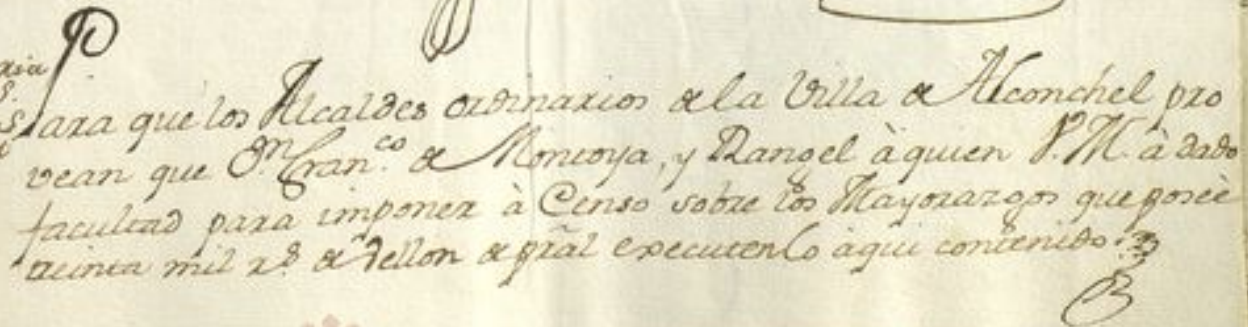 Para que los Alcaldes ordinarios de la Villa de Alconchel pro
vean que Dn. Franco. de Montoya, y Rangel à quien V. M. à dado
facultad para imponer à Censo sobre los Mayorazgos que poseè
treinta mil rs. de vellon de pral executen lo aqui contenido